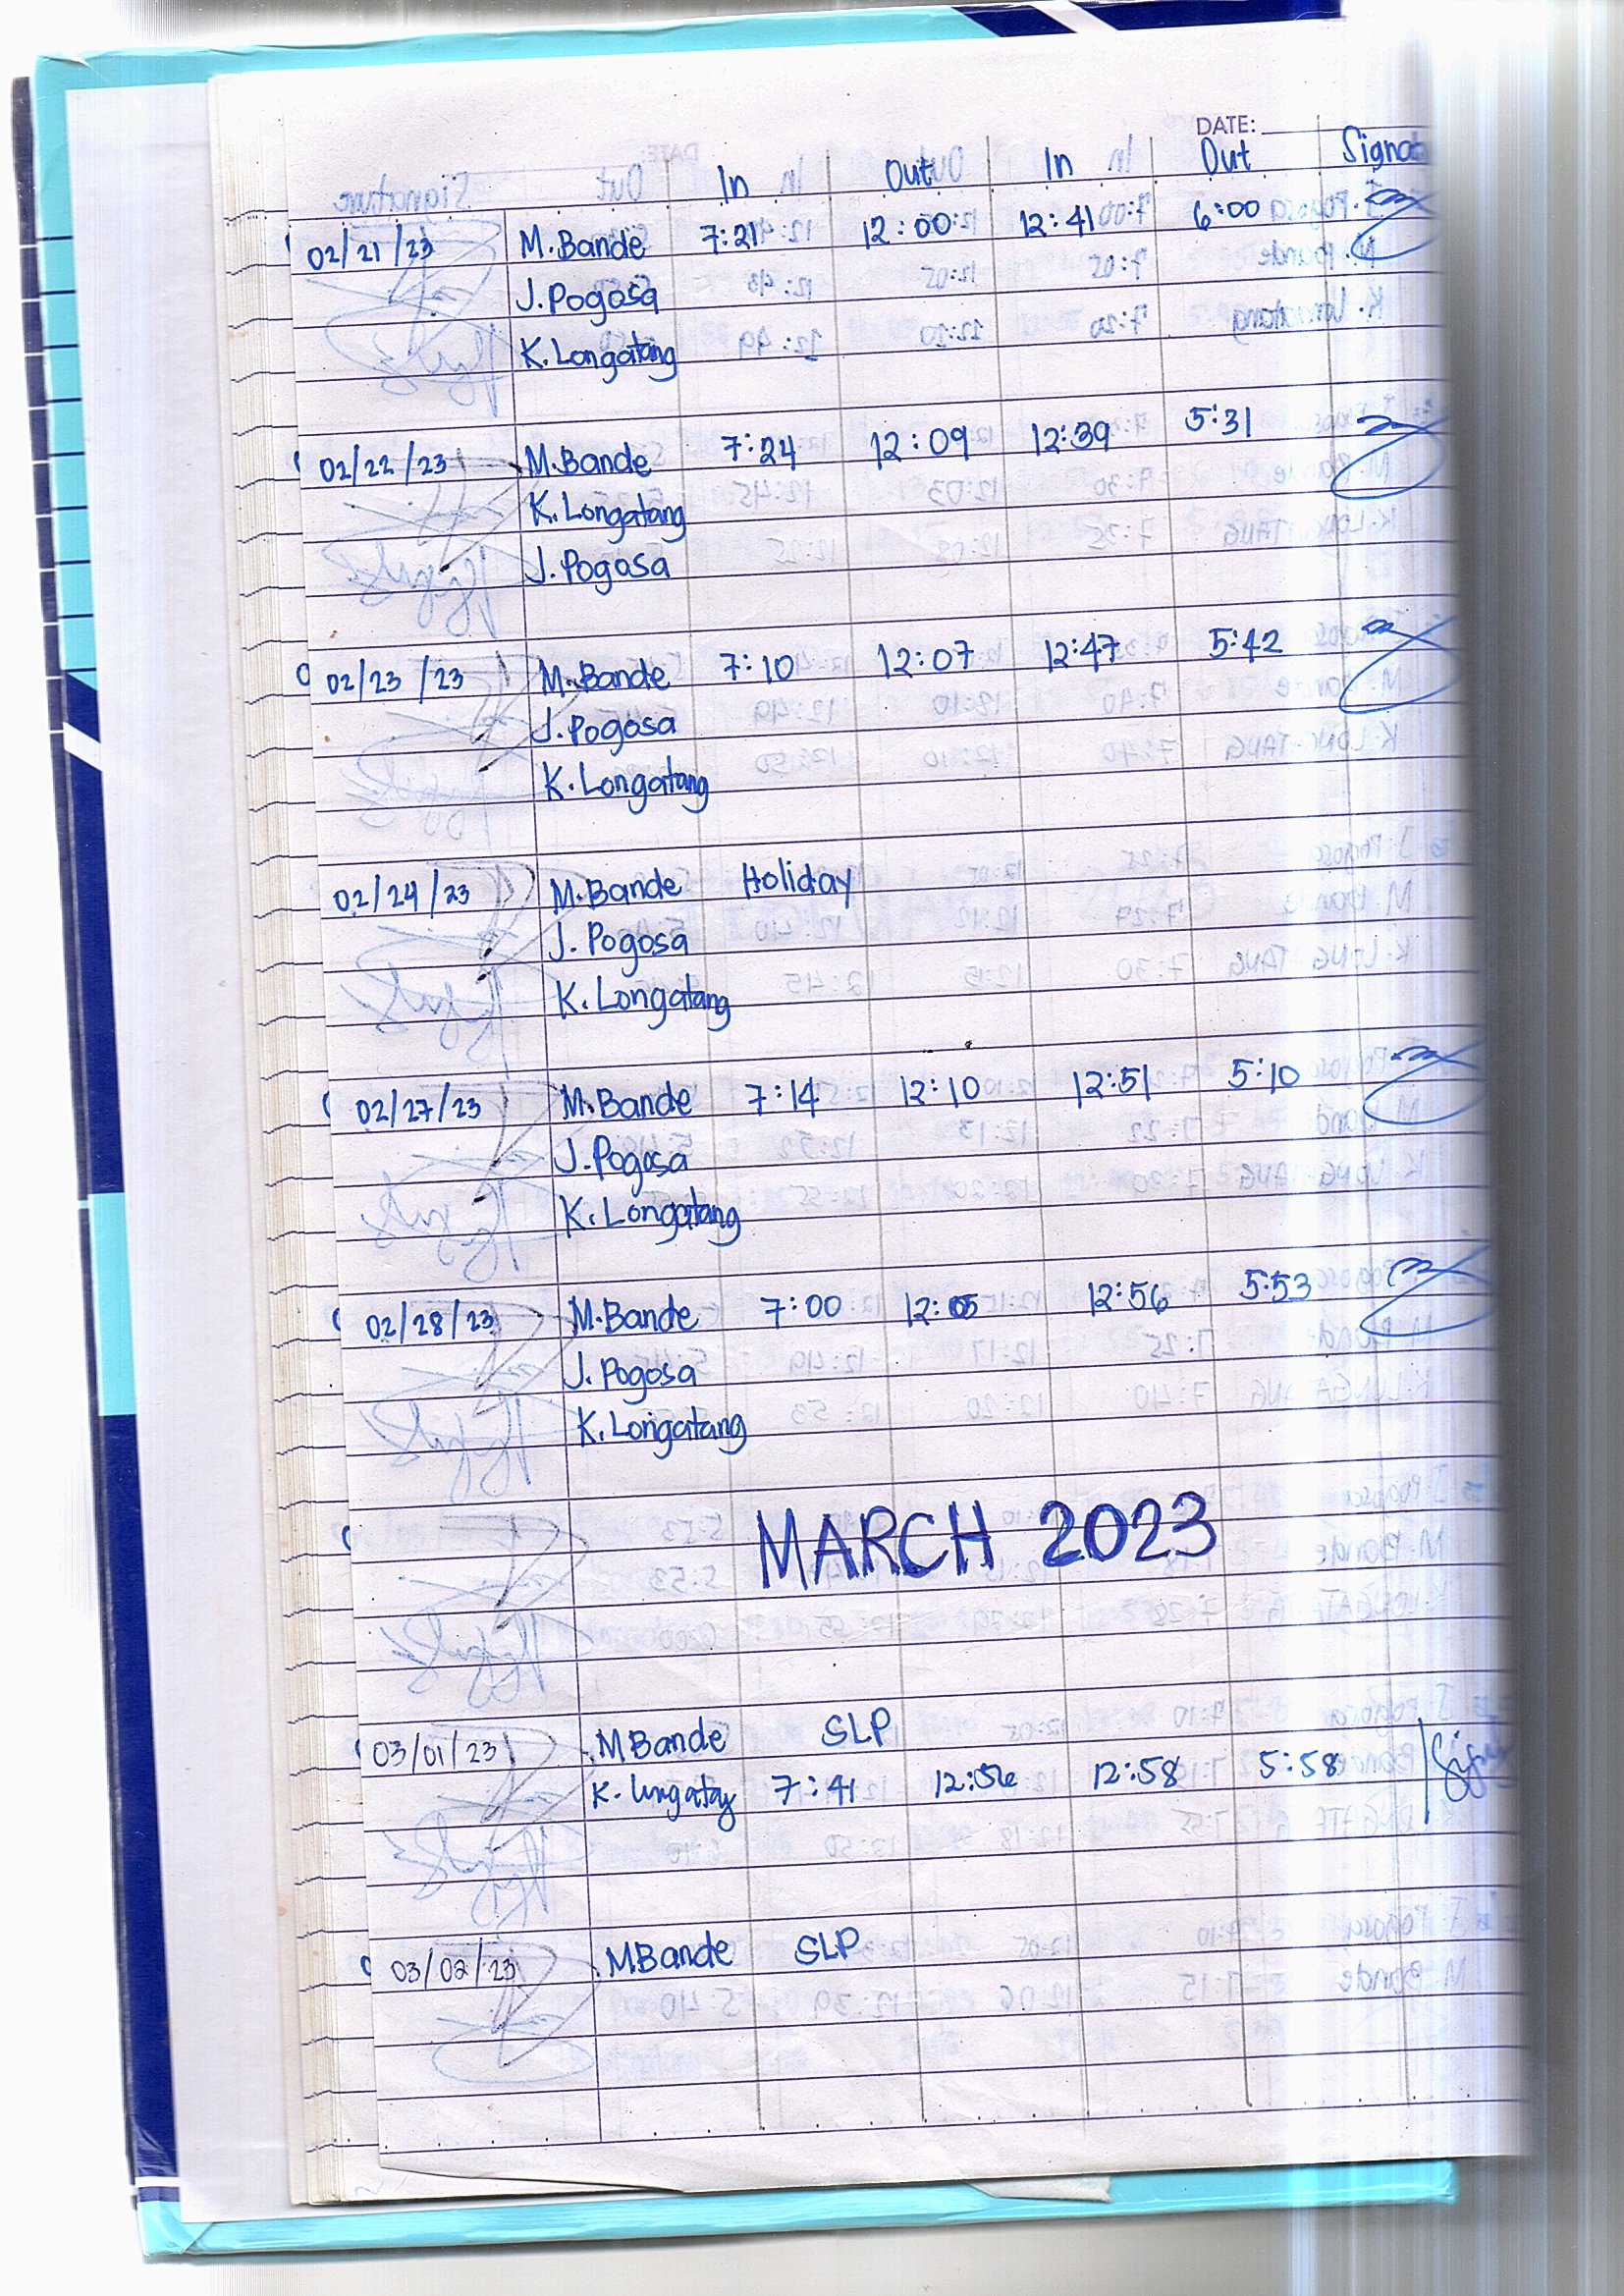 DATE:
In Out In Out
02/21/23 M. Bande 7:21 12:00 12:41 6:00
J. Pogosa
K. Longatang
02/22/23 M. Bande 7:24 12:09 12:39 5:31
K. Longatang
J. Pogosa
02/23/23 M. Bande 7:10 12:07 12:47 5:42
J. Pogosa
K. Longatang
02/24/23 M. Bande Holiday
J. Pogosa
K. Longatang
02/27/23 M. Bande 7:14 12:10 12:51 5:10
J. Pogosa
K. Longatang
02/28/23 M. Bande 7:00 12:05 12:56 5:53
J. Pogosa
K. Longatang
MARCH 2023
03/01/23 M Bande SLP
K. 7:41 12:56 12:58 5:58
03/02/23 M Bande SLP